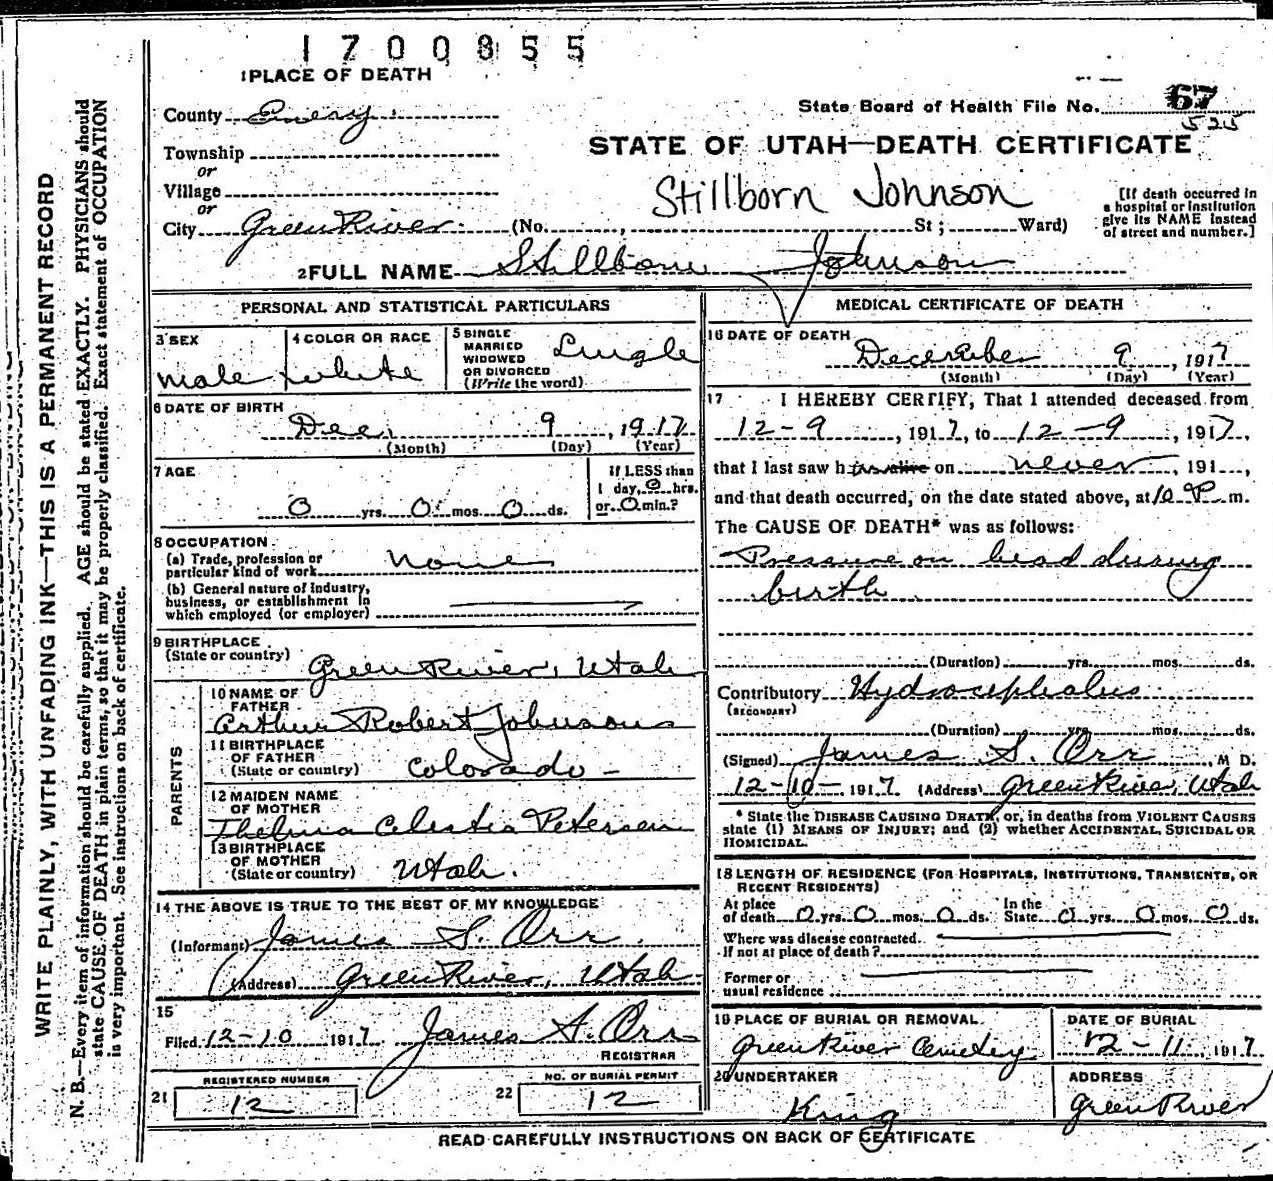 1700855
1 PLACE OF DEATH
County Emery.
State Board of Health File No. 67
525
Township
or
Village
or
City Green River (No. , St ; Ward)
STATE OF UTAH—DEATH CERTIFICATE
Stillborn Johnson
[If death occurred in
a hospital or institution
give its NAME instead
of street and number.]
2 FULL NAME Stillborn Johnson
PERSONAL AND STATISTICAL PARTICULARS
3 SEX
male
4 COLOR OR RACE
white
5 SINGLE
MARRIED
WIDOWED
OR DIVORCED
(Write the word)
Single
6 DATE OF BIRTH
Dec. 9, 1917
(Month) (Day) (Year)
7 AGE
0 yrs. 0 mos. 0 ds.
If LESS than
1 day, 0 hrs.
or 0 min.?
8 OCCUPATION
(a) Trade, profession or
particular kind of work None
(b) General nature of industry,
business, or establishment in
which employed (or employer)
9 BIRTHPLACE
(State or country) Green River, Utah
PARENTS
10 NAME OF
FATHER
Arthur Robert Johnson
11 BIRTHPLACE
OF FATHER
(State or country) Colorado -
12 MAIDEN NAME
OF MOTHER
Thelma Celestia Petersen
13 BIRTHPLACE
OF MOTHER
(State or country) Utah.
14 THE ABOVE IS TRUE TO THE BEST OF MY KNOWLEDGE
(Informant) James S. Orr
(Address) Green River, Utah
15
Filed 12-10 1917. James S. Orr
REGISTRAR
21 REGISTERED NUMBER
12
22 NO. OF BURIAL PERMIT
12
MEDICAL CERTIFICATE OF DEATH
16 DATE OF DEATH
December 9, 1917
(Month) (Day) (Year)
17 I HEREBY CERTIFY, That I attended deceased from
12-9, 1917, to 12-9, 1917,
that I last saw h alive on never, 191 ,
and that death occurred, on the date stated above, at 10 P m.
The CAUSE OF DEATH* was as follows:
Pressure on head during
birth
(Duration) yrs. mos. ds.
Contributory Hydrocephalus
(SECONDARY)
(Duration) yrs. mos. ds.
(Signed) James S. Orr, M D.
12-10-1917. (Address) Green River, Utah
* State the DISEASE CAUSING DEATH, or, in deaths from VIOLENT CAUSES
state (1) MEANS OF INJURY; and (2) whether ACCIDENTAL, SUICIDAL OR
HOMICIDAL.
18 LENGTH OF RESIDENCE (FOR HOSPITALS, INSTITUTIONS, TRANSIENTS, OR
RECENT RESIDENTS)
At place
of death 0 yrs. 0 mos. 0 ds. In the
State 0 yrs. 0 mos. 0 ds.
Where was disease contracted
If not at place of death?
Former or
usual residence
19 PLACE OF BURIAL OR REMOVAL
Green River Cemetery
DATE OF BURIAL
12-11, 1917
20 UNDERTAKER
King
ADDRESS
Green River
READ CAREFULLY INSTRUCTIONS ON BACK OF CERTIFICATE
WRITE PLAINLY, WITH UNFADING INK—THIS IS A PERMANENT RECORD
N. B.—Every item of information should be carefully supplied. AGE should be stated EXACTLY. PHYSICIANS should
state CAUSE OF DEATH in plain terms, so that it may be properly classified. Exact statement of OCCUPATION
is very important. See instructions on back of certificate.